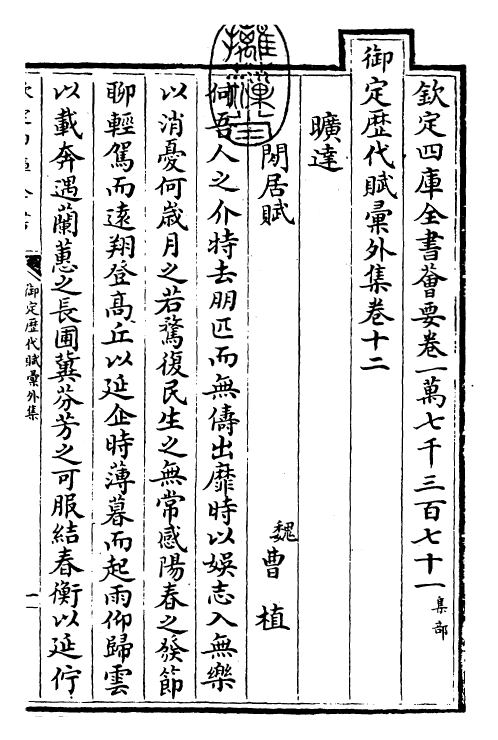 欽定四庫全書薈要卷一萬七千三百七十一集部
御定歴代賦彙外集卷十二
曠達
閒居賦 魏曹植
何吾人之介特去朋匹而無儔出靡時以娛志入無樂
以消憂何歳月之若騖復民生之無常感陽春之發節
聊輕駕而逺翔登髙丘以延企時薄暮而起雨仰歸雲
以載奔遇蘭蕙之長圃冀芬芳之可服結春衡以延佇
御定歴代賦彙外集
一